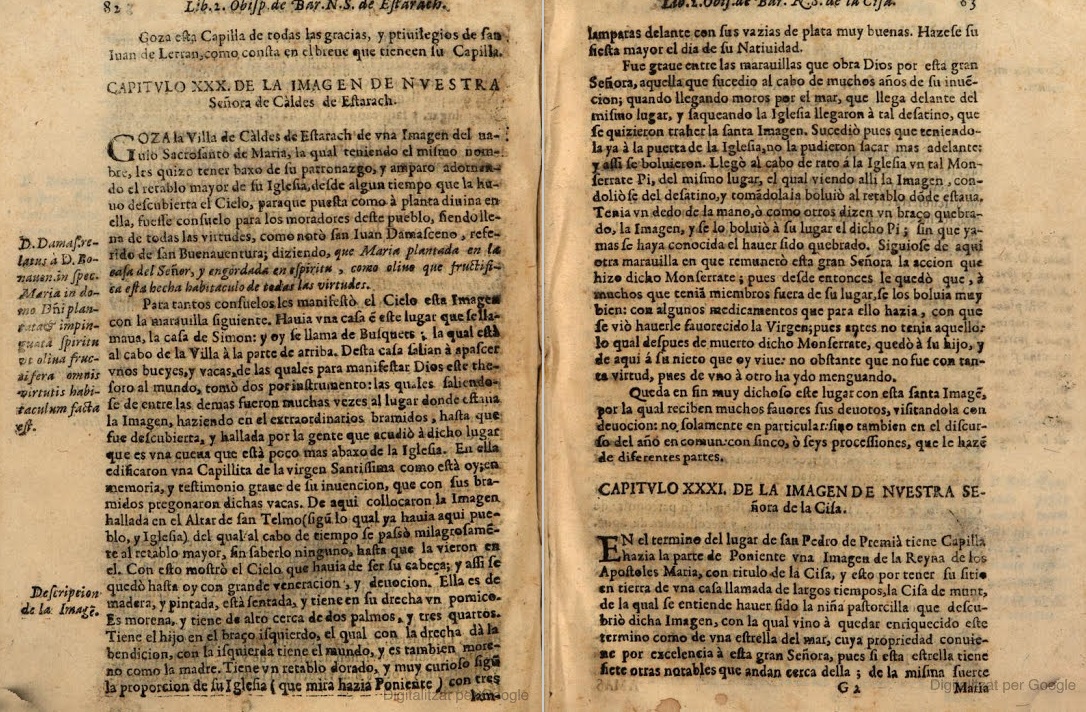 82 Lib.2. Obisp.de Bar.N.S. de Estarach.
Goza esta Capilla de todas las gracias, y priuilegios de san
Iuan de Letran,como consta en el breue que tieneen su Capilla.
CAPITVLO XXX. DE LA IMAGEN DE NVESTRA
Señora de Càldes de Estarach.
GOZA la Villa de Càldes de Estarach de vna Imagen del na-
Guio Sacrosanto de Maria, la qual teniendo el mismo nom-
bre, les quizo tener baxo de su patronazgo, y amparo adornan-
do el retablo mayor de su Iglesia,desde algun tiempo que la hu-
uo descubierta el Cielo, paraque puesta como à planta diuina en
ella, fuesse consuelo para los moradores deste pueblo, siendolle-
na de todas las virtudes, como notò san Iuan Damasceno , refe-
rido de san Buenauentura; diziendo, que Maria plantada en la
casa del Señor, y engordada en espiritu , como oliuo que fructifi-
ca esta hecha habitaculo de todas las virtudes.
D. Damas.re-
latus à D. Bo-
nauen.in spec.
Maria in do-
mo Dñi plan-
tata& impin-
guata spiritu
vt oliua fruc-
tifera omnis
virtutis habi-
taculum facta
est.
Para tantos consuelos les manifestò el Cielo esta Imagen
con la marauilla siguiente. Hauia vna casa ẽ este lugar que se lla-
maua, la casa de Simon: y oy se llama de Busquets ; la qual està
al cabo de la Villa à la parte de arriba. Desta casa salian à apascer
vnos bueyes,y vacas,de las quales para manifestar Dios este the-
soro al mundo, tomò dos por instrumento: las quales saliendo-
se de entre las demas fueron muchas vezes al lugar donde estaua
la Imagen, haziendo en el extraordinarios bramidos , hasta que
fue descubierta, y hallada por la gente que acudiò à dicho lugar
que es vna cueua que està poco mas abaxo de la Iglesia. En ella
edificaron vna Capillita de la virgen Santissima como està oy;en
memoria, y testimonio graue de su inuencion, que con sus bra-
midos pregonaron dichas vacas. De aqui collocaron la Imagen
hallada en el Altar de san Telmo(sigũ lo qual ya hauia aqui pue-
blo, y Iglesia) del qual al cabo de tiempo se passò milagrosamẽ-
te al retablo mayor, sin saberlo ninguno, hasta que la vieron en
el. Con esto mostrò el Cielo que hauia de ser su cabeça; y assi se
quedò hasta oy con grande veneracion , y deuocion. Ella es de
madera, y pintada, està sentada, y tiene en su drecha vn pomico.
Es morena, y tiene de alto cerca de dos palmos, y tres quartos.
Tiene el hijo en el braço isquierdo, el qual con la drecha dà la
bendicion, con la isquierda tiene el mundo, y es tambien more-
no como la madre. Tiene vn retablo dorado, y muy curioso sigũ
la proporcion de su Iglesia ( que mira hazia Poniente ) con tres
lam-
Description
de la Imagẽ.
Lib.2.Obis.de Bar. N.S. de la Cisa. 83
lamparas delante con sus vazias de plata muy buenas. Hàzese su
fiesta mayor el dia de su Natiuidad.
Fue graue entre las marauillas que obra Dios por esta gran
Señora, aquella que sucedio al cabo de muchos años de su inuẽ-
cion; quando llegando moros por el mar, que llega delante del
mismo lugar, y saqueando la Iglesia llegaron à tal desatino, que
se quizieron traher la santa Imagen. Sucediò pues que teniendo-
la ya à la puerta de la Iglesia,no la pudieron sacar mas adelante:
y assi se boluieron. Llegò al cabo de rato á la Iglesia vn tal Mon-
serrate Pi, del mismo lugar, el qual viendo alli la Imagen , con-
doliòse del desatino,y tomãdola la boluiò al retablo dõde estaua.
Tenia vn dedo de la mano,ò como otros dizen vn braço quebra-
do, la Imagen, y se lo boluiò a su lugar el dicho Pi ; sin que ya-
mas se haya conocida el hauer sido quebrado. Siguiose de aqui
otra marauilla en que remunerò esta gran Señora la accion que
hizo dicho Monserrate ; pues desde entonces le quedò que , à
muchos que teniã miembros fuera de su lugar,se los boluia muy
bien: con algunos medicamentos que para ello hazia , con que
se viò hauerle fauorecido la Virgen;pues antes no tenia aquello:
lo qual despues de muerto dicho Monserrate, quedò à su hijo, y
de aqui á su nieto que oy viue: no obstante que no fue con tan-
ta virtud, pues de vno à otro ha ydo menguando.
Queda en fin muy dichoso este lugar con esta santa Imagẽ,
por la qual reciben muchos fauores sus deuotos, visitandola con
deuocion: no solamente en particular:sino tambien en el discur-
so del año en comun:con sinco, ò seys processiones, que le hazẽ
de diferentes partes.
CAPITVLO XXXI. DE LA IMAGEN DE NVESTRA SE-
ñora de la Cisa.
EN el termino del lugar de san Pedro de Premià tiene Capilla
hazia la parte de Poniente vna Imagen de la Reyna de los
Apostoles Maria, con titulo de la Cisa, y esto por tener su sitio
en tierra de vna casa llamada de largos tiempos,la Cisa de munt,
de la qual se entiende hauer sido la niña pastorcilla que descu-
briò dicha Imagen, con la qual vino à quedar enriquecido este
termino como de vna estrella del mar, cuya propriedad conuie-
ne por excelencia à esta gran Señora, pues si esta estrella tiene
siete otras notables que andan cerca della ; de la misma suerte
G 2 Maria
Digitalitzat per Google
Digitalitzat per Google